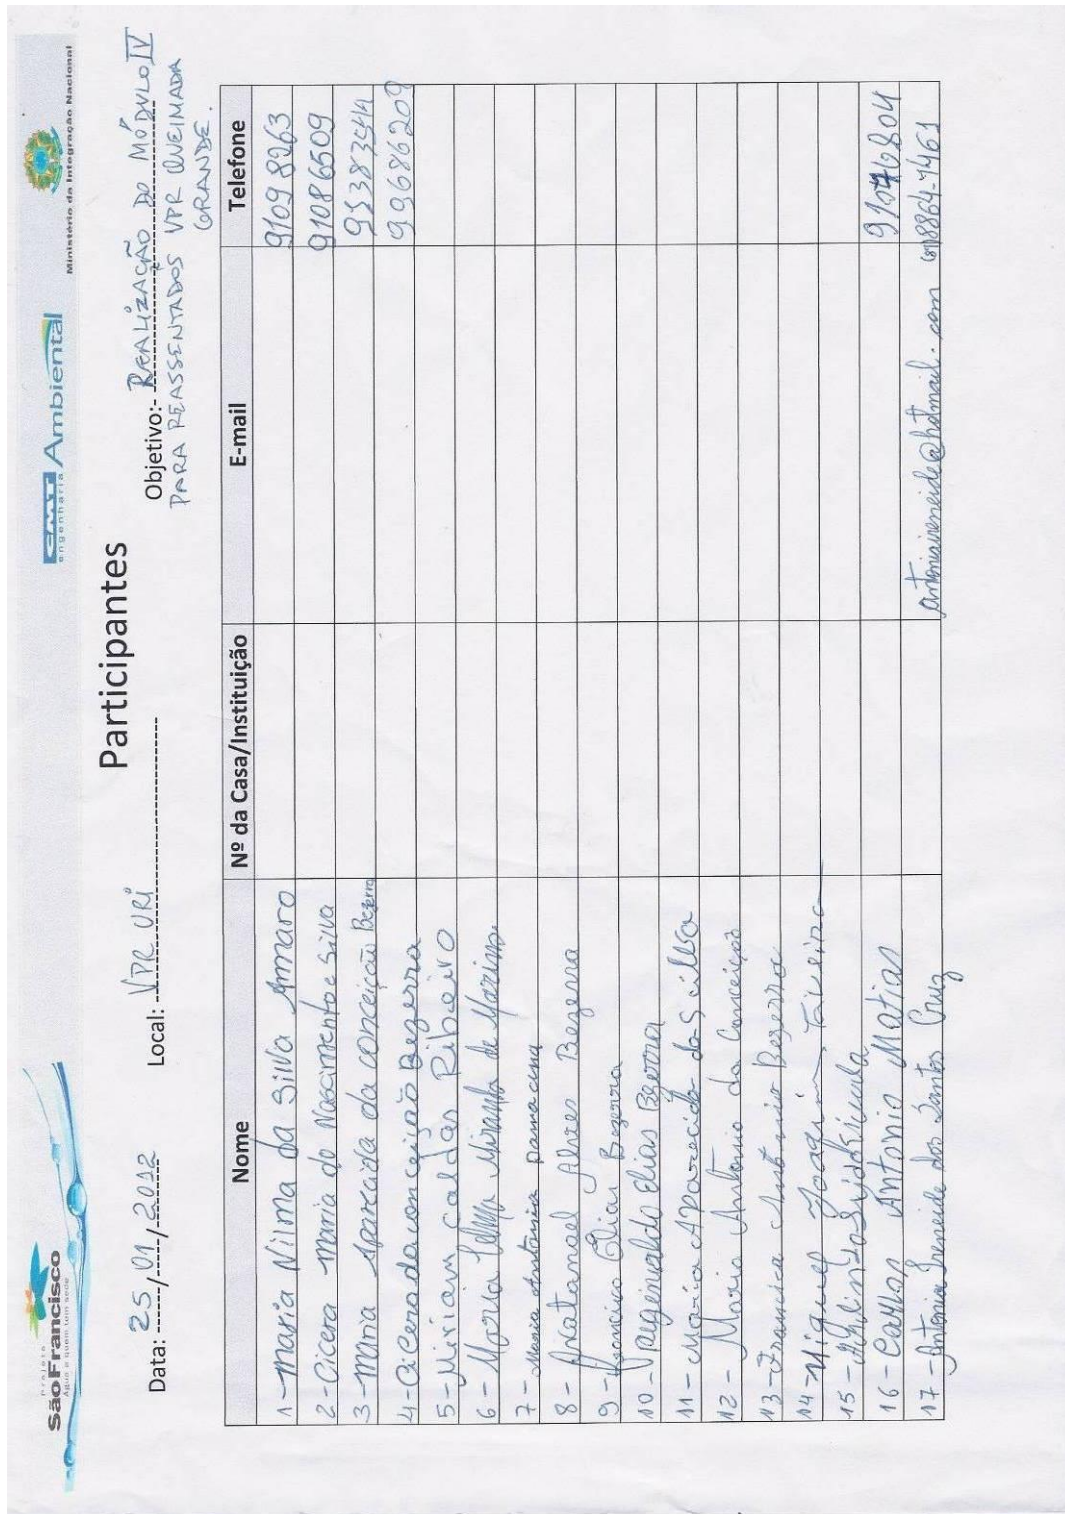 Projeto
São Francisco
Água a quem tem sede
CMT Ambiental
engenharia
Ministério da Integração Nacional
Participantes
Data: 25/01/2012 Local: VPR URI Objetivo:- REALIZAÇÃO DO MÓDULO IV
PARA REASSENTADOS VPR QUEIMADA
GRANDE.
Nome Nº da Casa/Instituição E-mail Telefone
1 - Maria Nilma da Silva Amaro 9109 8263
2 - Cicera Maria do Nascimento e Silva 91086509
3 - Maria Aparecida da conceição Bezerra
4 - Cicera da conceição Bezerra 99686209
5 - Miriam caldas Ribeiro
6 - Maria Miranda de
7 - Maria Antônia
8 - Natanael Alves Bezerra
9 - Elias Bezerra
10 - Reginaldo Elias Bezerra
11 - Maria Aparecida da Silva
12 - Maria Antônia da Conceição
13 - Francisca Antonia Bezerra
14 - Miguel Joaquim
15 -
16 - Carlos Antonio Matias 91076804
17 - Antonia Ireneide dos Santos Cruz antoniaireneide@hotmail.com 8864-1461